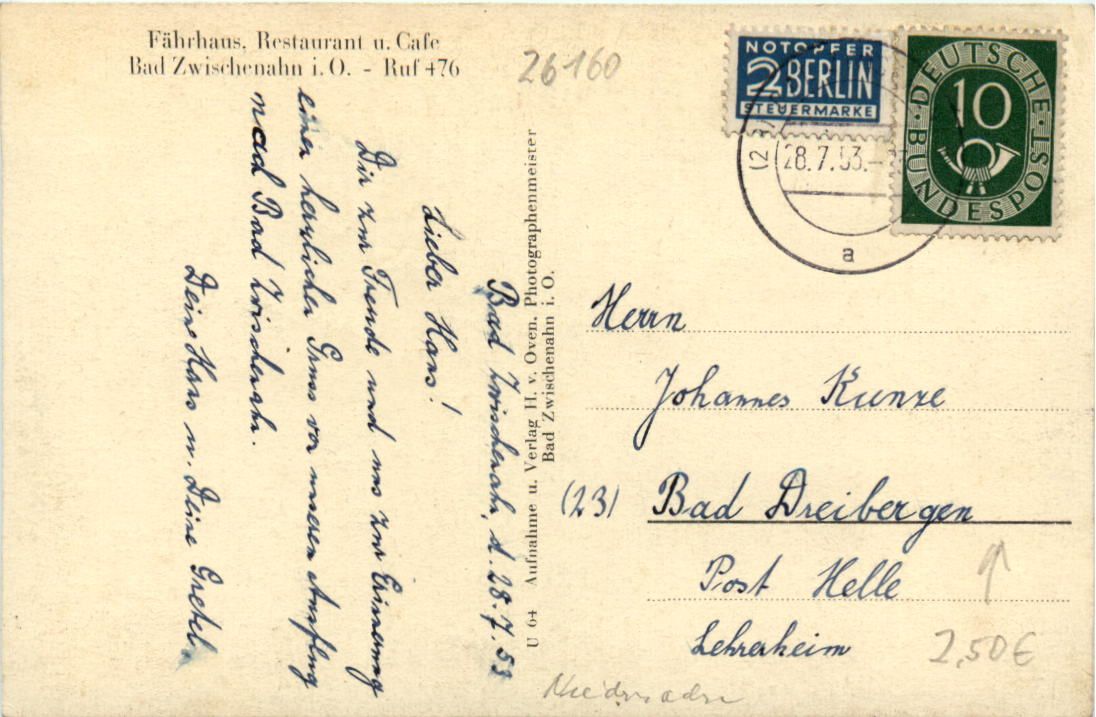 Fährhaus, Restaurant u. Cafe
Bad Zwischenahn i. O. - Ruf 476
26160
NOTOPFER
2 BERLIN
STEUERMARKE
DEUTSCHE
10
BUNDESPOST
28.7.53.-
a
Bad Zwischenahn, d. 28.7.53
Lieber Hans!
Dir zur Freude und uns zur Erinnerung
einen herzlichen Gruss von unseren Ausflug
nach Bad Zwischenahn.
Deine Hans u. Deine Gretel.
U 64 Aufnahme u. Verlag H. v. Oven, Photographenmeister
Bad Zwischenahn i. O.
Herrn
Johannes Kunze
(23) Bad Dreibergen
Post Helle
Lehrerheim
2,50€